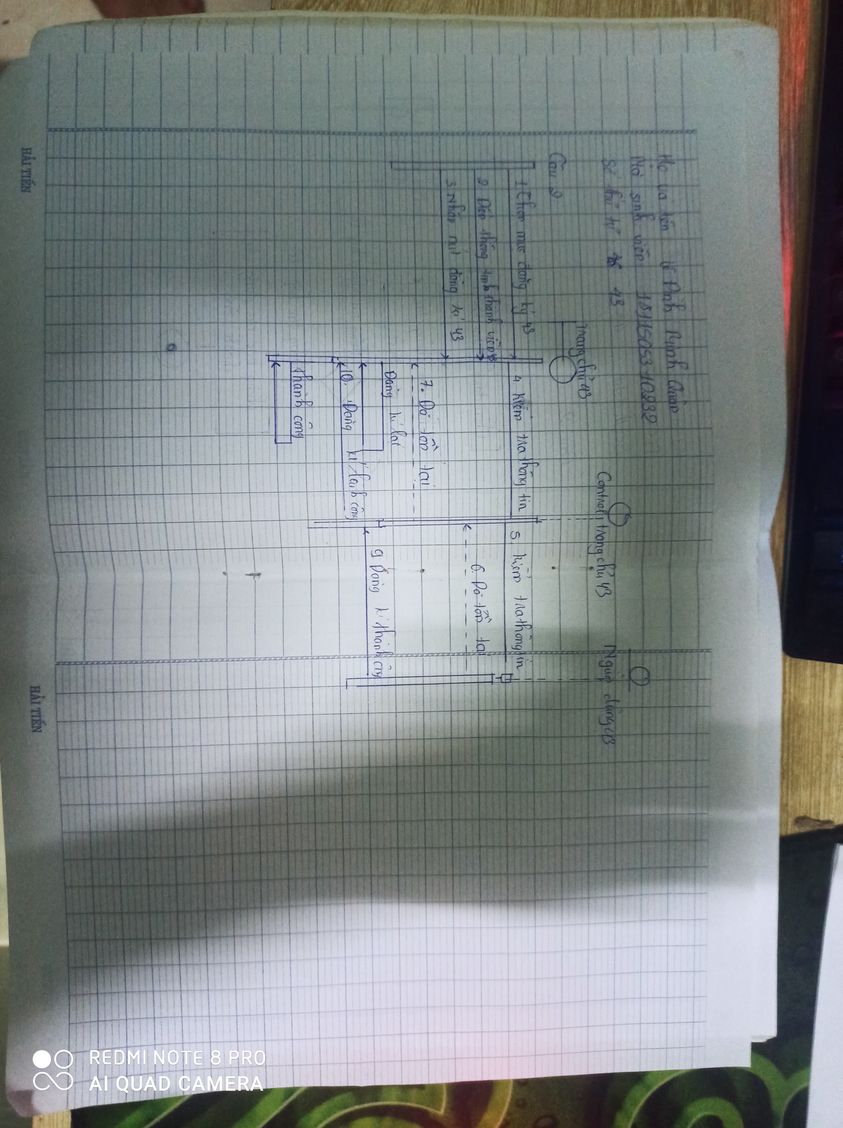 Họ và tên Lê Đình Minh Quân
Mã sinh viên: 1811505310
Số thứ tự 43
Câu 2
Trang chủ 43
Control trang chủ 43
Người dùng 43
1. Chọn mục đăng ký 43
2. Điền thông tin thành viên
3. Nhấn nút đăng kí 43
4. Kiểm tra thông tin
5. kiểm tra thông tin
6. Đã tồn tại
7. Đã tồn tại
Đăng kí lại
9. Đăng kí thành công
10. Đăng kí thành công
Thành công
HẢI TIẾN
HẢI TIẾN
REDMI NOTE 8 PRO
AI QUAD CAMERA